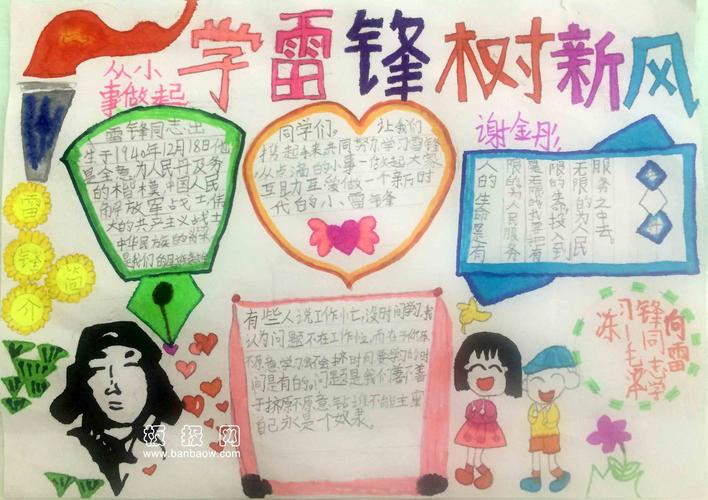 学雷锋树新风
从小
事做起
雷锋同志出
生于1940年12月18日他
是全意为人民丹及务
的楷模,中国人民
解放军战士伟
大的共产主义战士
中华民族的
是我们的
同学们。让我们
携起手来共同努力学习雷锋
从点滴的小事一做起大家
互助互爱做一个新时
代的小、雷锋
谢金彤
人的生命是有
限的为人民服务
是无限的我要把有
限的生命投入到
无限的为人民
服务之中去。
雷
锋
简
介
有些人说工作忙,没时间学习,我
认为问题不在工作忙,而在于你愿
不愿意学习会不会挤时间要学习的时
间是有的。问题是我们善不善
于挤愿不愿意钻
自己永是个奴隶。
向雷
锋同志学
习—毛泽
东
板报网
www.banbaow.com